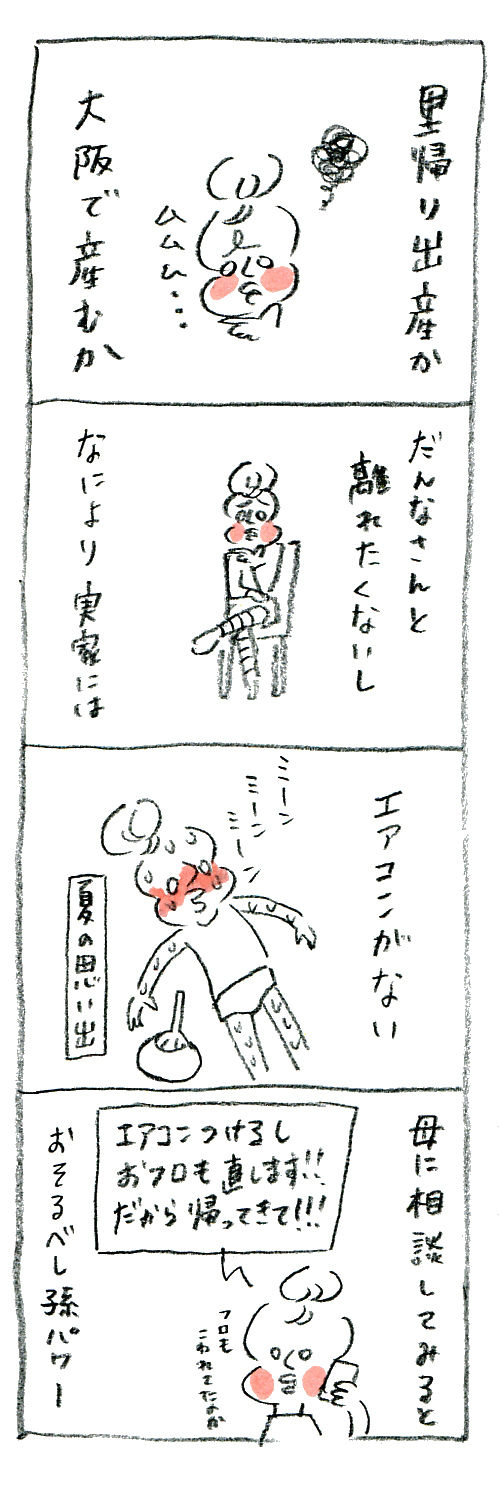 里帰り出産か
大阪で産むか
ムムム・・・
だんなさんと
離れたくないし
なにより実家には
エアコンがない
ミーン
ミーン
ミーン
夏の思い出
母に相談してみると
エアコンつけるし
おフロも直します!!
だから帰ってきて!!!
フロも
こわれてたのか
おそるべし孫パワー